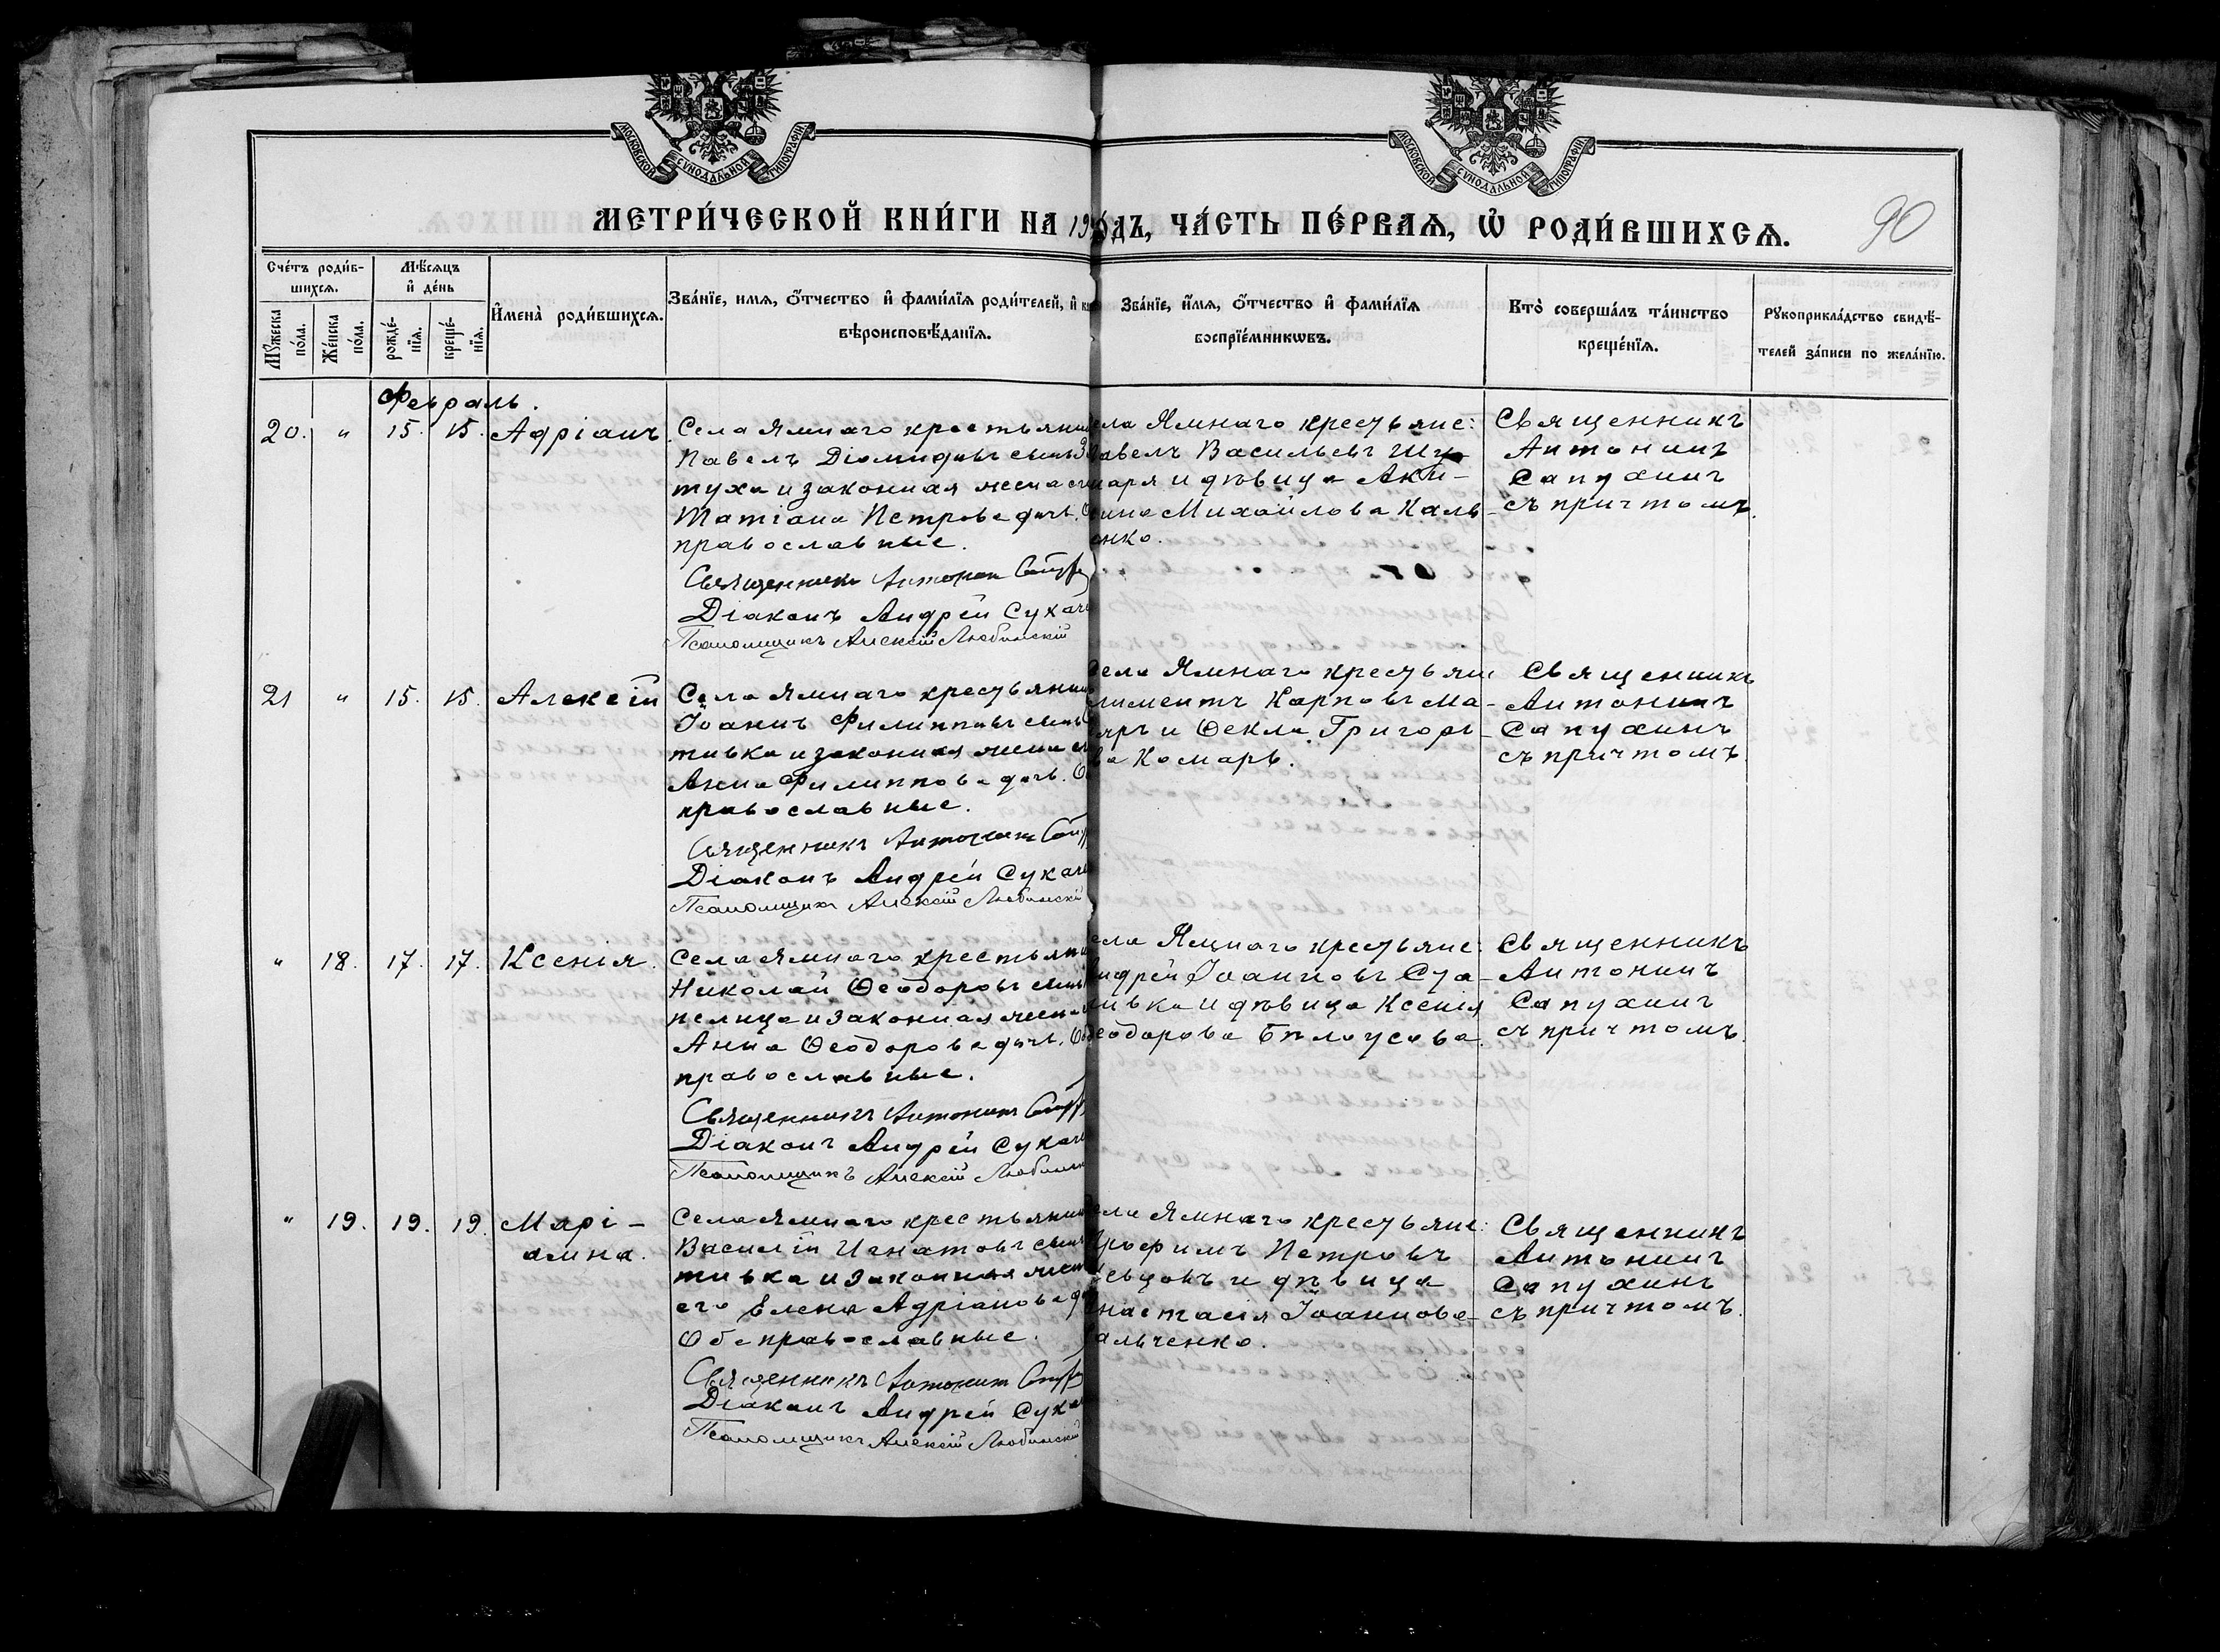 МОСКОВСКОЙ СУНОДАЛЬНОЙ ТИПОГРАФІИ
МОСКОВСКОЙ СУНОДАЛЬНОЙ ТИПОГРАФІИ
МЕТРИ́ЧЕСКОЙ КНИ́ГИ НА 19 ГОДЪ, ЧА́СТЬ ПЕ́РВАѦ, Ѡ РОДИ́ВШИХСѦ.
90
Сче́тъ роди́в-
шихсѧ.
Мꙋжеска по́ла.
Же́нска по́ла.
Мѣ́сѧцъ
и҆ де́нь
рожде́-
нїѧ.
креще́-
нїѧ.
И҆мена̀ роди́вшихсѧ.
Зва́нїе, имѧ, ѻ҆́тчество и҆ фами́лїѧ роди́телей, и҆
вѣроисповѣ́данїѧ.
Зва́нїе, и҆́мѧ, ѻ҆́тчество и҆ фами́лїѧ
воспрїе́мникѡвъ.
Кто̀ соверша́лъ та́инство
креще́нїѧ.
Рꙋкоприкла́дство свидѣ́-
телей за́писи по жела́нїю.
Февраль.
20. " 15. 15. Адріанъ
Села Ямнаго крестьянинъ
Павелъ Діомидовъ сынъ
туха и законная жена его
Татіана Петрова дочь.
православные.
Священникъ Антонин
Діаконъ Андрей Сукаче
Псаломщикъ Алексій Любинскій
ела Ямнаго крестьяне:
Павелъ Васильевъ Шу-
маря и дѣвица Аки-
лина Михайлова Каль-
енко.
Священникъ
Антонинъ
Сапухинъ
съ причтомъ.
21 " 15. 15. Алексій
Села Ямнаго крестьянинъ
Іоаннъ Филипповъ сынъ
тивка и законная жена его
Анна Филиппова дочь.
православные.
Священникъ Антонинъ
Діаконъ Андрей Сукаче
Псаломщикъ Алексій Любинскій
села Ямнаго крестьяне
лиментъ Карповъ Ма-
и Ѳекла Григорь-
ва Комарь.
Священникъ
Антонинъ
Сапухинъ
съ причтомъ.
" 18. 17. 17. Ксенія.
Села Ямнаго крестьянинъ
Николай Ѳеодоровъ сынъ
пелица и законная жена
Анна Ѳеодорова дочь. Об
православные.
Священникъ Антонинъ
Діаконъ Андрей Сукаче
Псаломщикъ Алексій Любинск
ела Ямнаго крестьяне:
ндрей Іоанновъ Суа-
ливка и дѣвица Ксенія
Ѳеодорова Бѣлоусова.
Священникъ
Антонинъ
Сапухинъ
съ причтомъ.
" 19. 19. 19. Марі-
амна.
Села Ямнаго крестьянинъ
Василій Игнатовъ сынъ
тивка и законная жена
его Елена Адріанова
Обе православные.
Священникъ Антонин
Діаконъ Андрей Сука
Псаломщикъ Алексій Любинскій
ела Ямнаго крестьяне:
Трофимъ Петровъ
евцовъ и дѣвица
настасія Іоаннова
альченко.
Священникъ
Антонинъ
Сапухинъ
съ причтомъ.